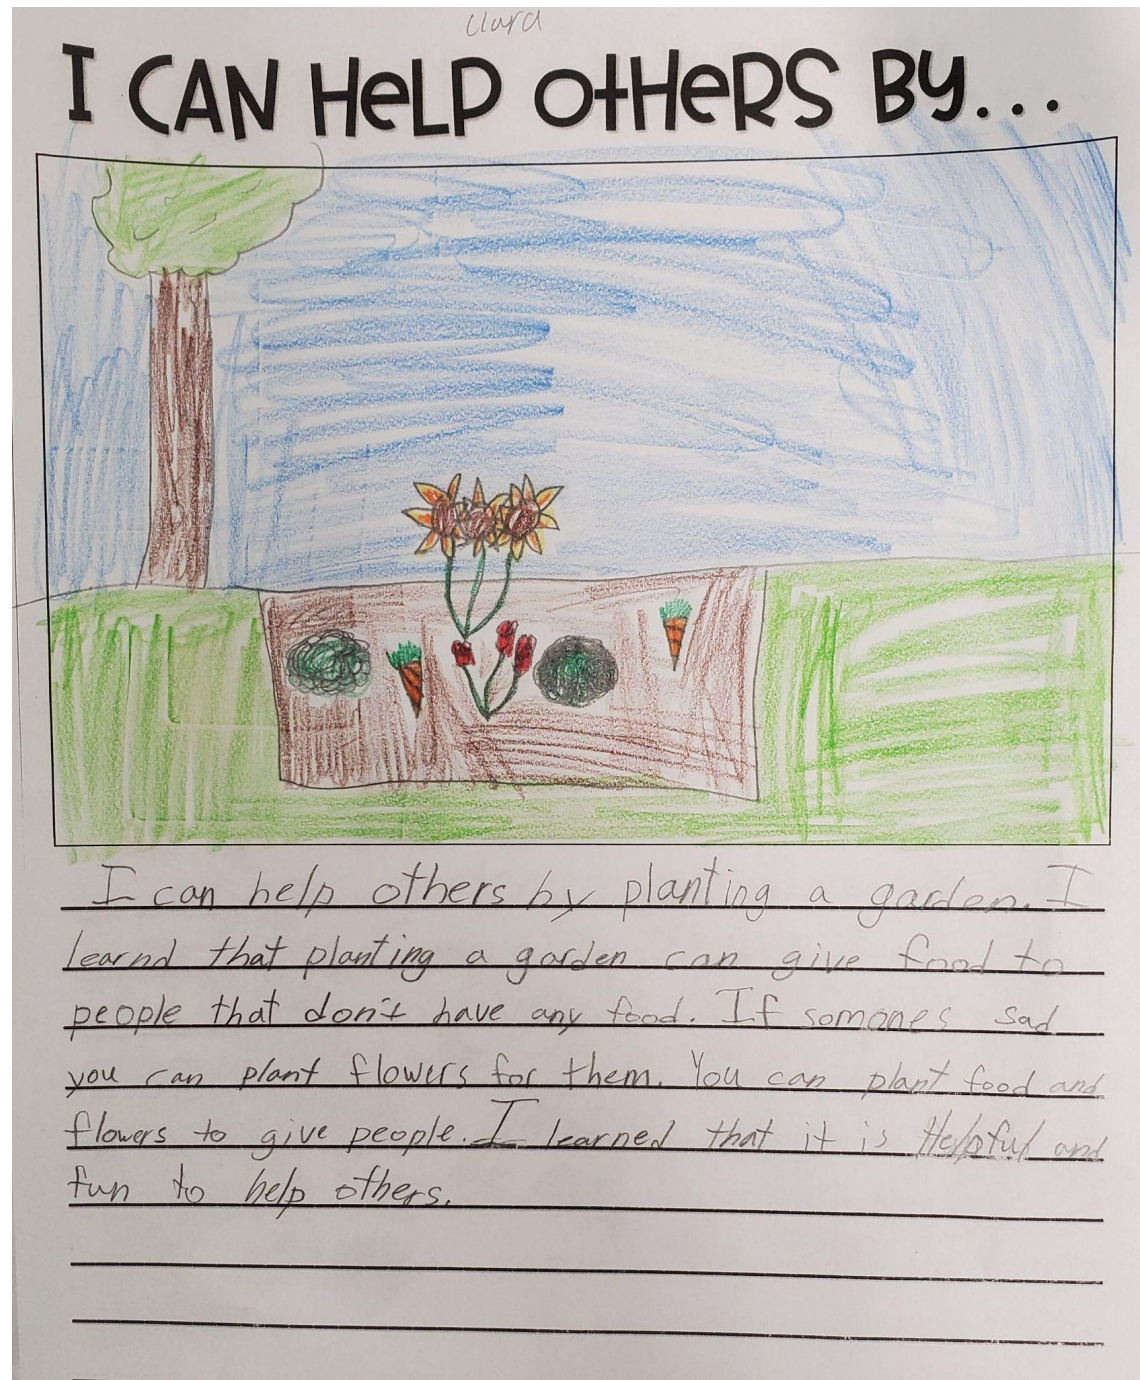 I CAN HELP OTHERS BY...
I can help others by planting a garden. I
learnd that planting a garden can give food to
people that don't have any food. If somones sad
you can plant flowers for them. You can plant food and
flowers to give people. I learned that it is Helpful and
fun to help others.